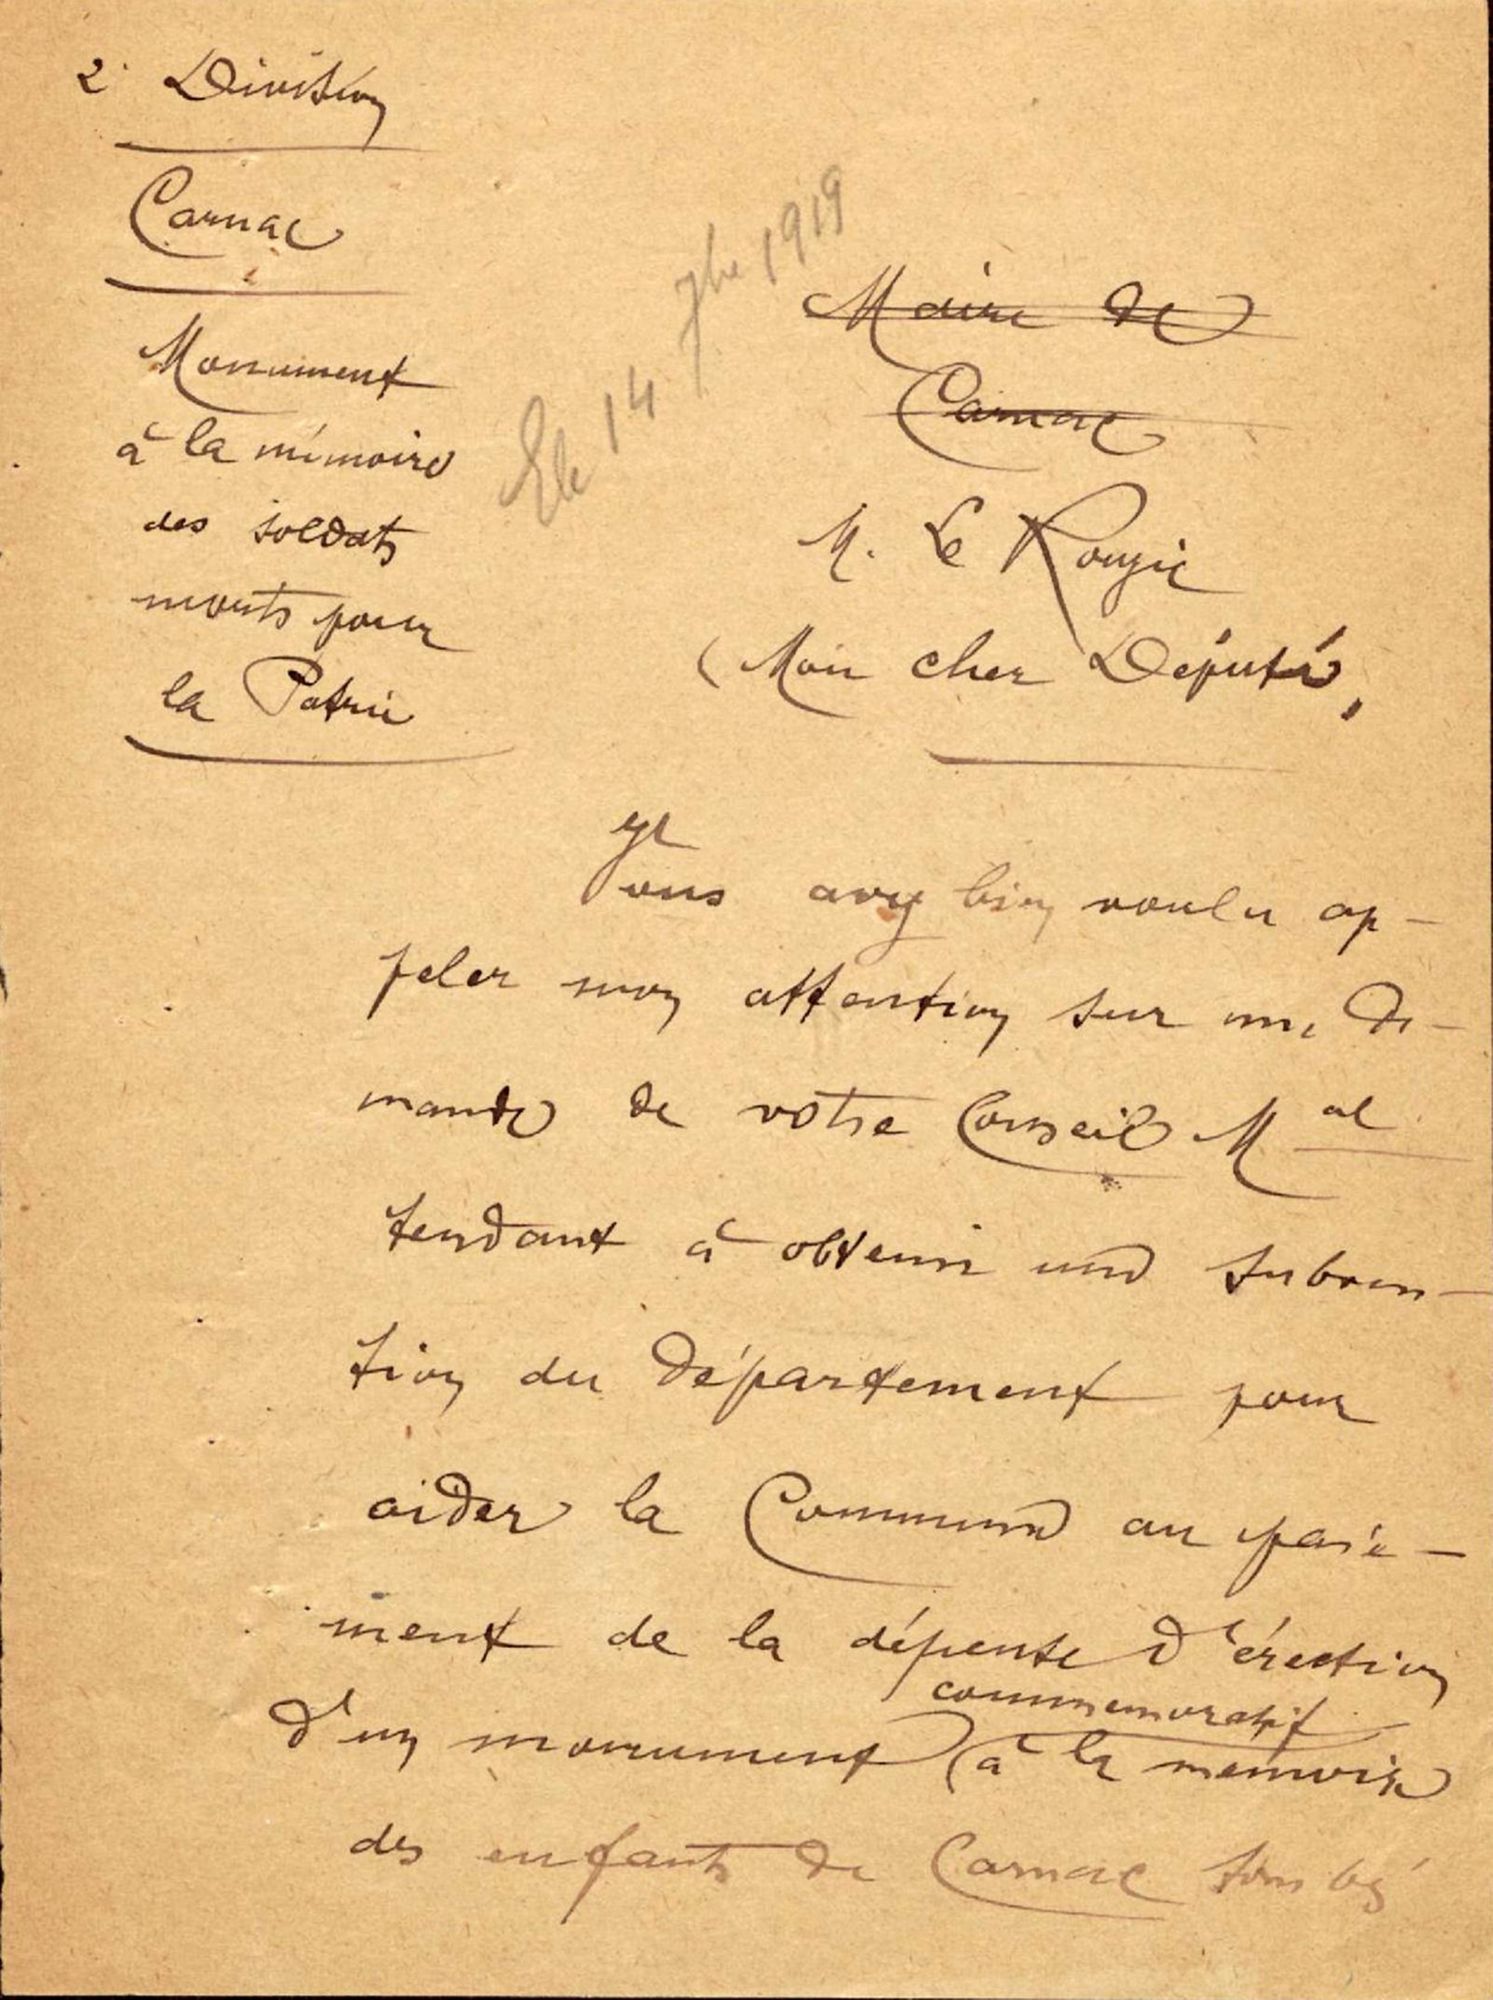 2e Division
Carnac
Monument
à la mémoire
des soldats
morts pour
la Patrie
14 7bre 1919
Maire de
Carnac
M. Le Rouzic
(Mon cher Député,
Vous avez bien voulu ap-
peler mon attention sur une de-
mande de votre Conseil Mal
tendant à obtenir une subven-
tion du département pour
aider la Commune au paie-
ment de la dépense d'érection
commémoratif
d'un monument (à la mémoire
des enfants de Carnac tombés